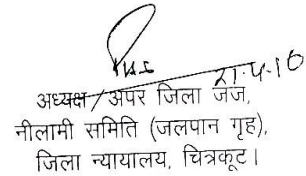 21.4.16
अध्यक्ष / अपर जिला जज,
नीलामी समिति (जलपान गृह),
जिला न्यायालय, चित्रकूट।